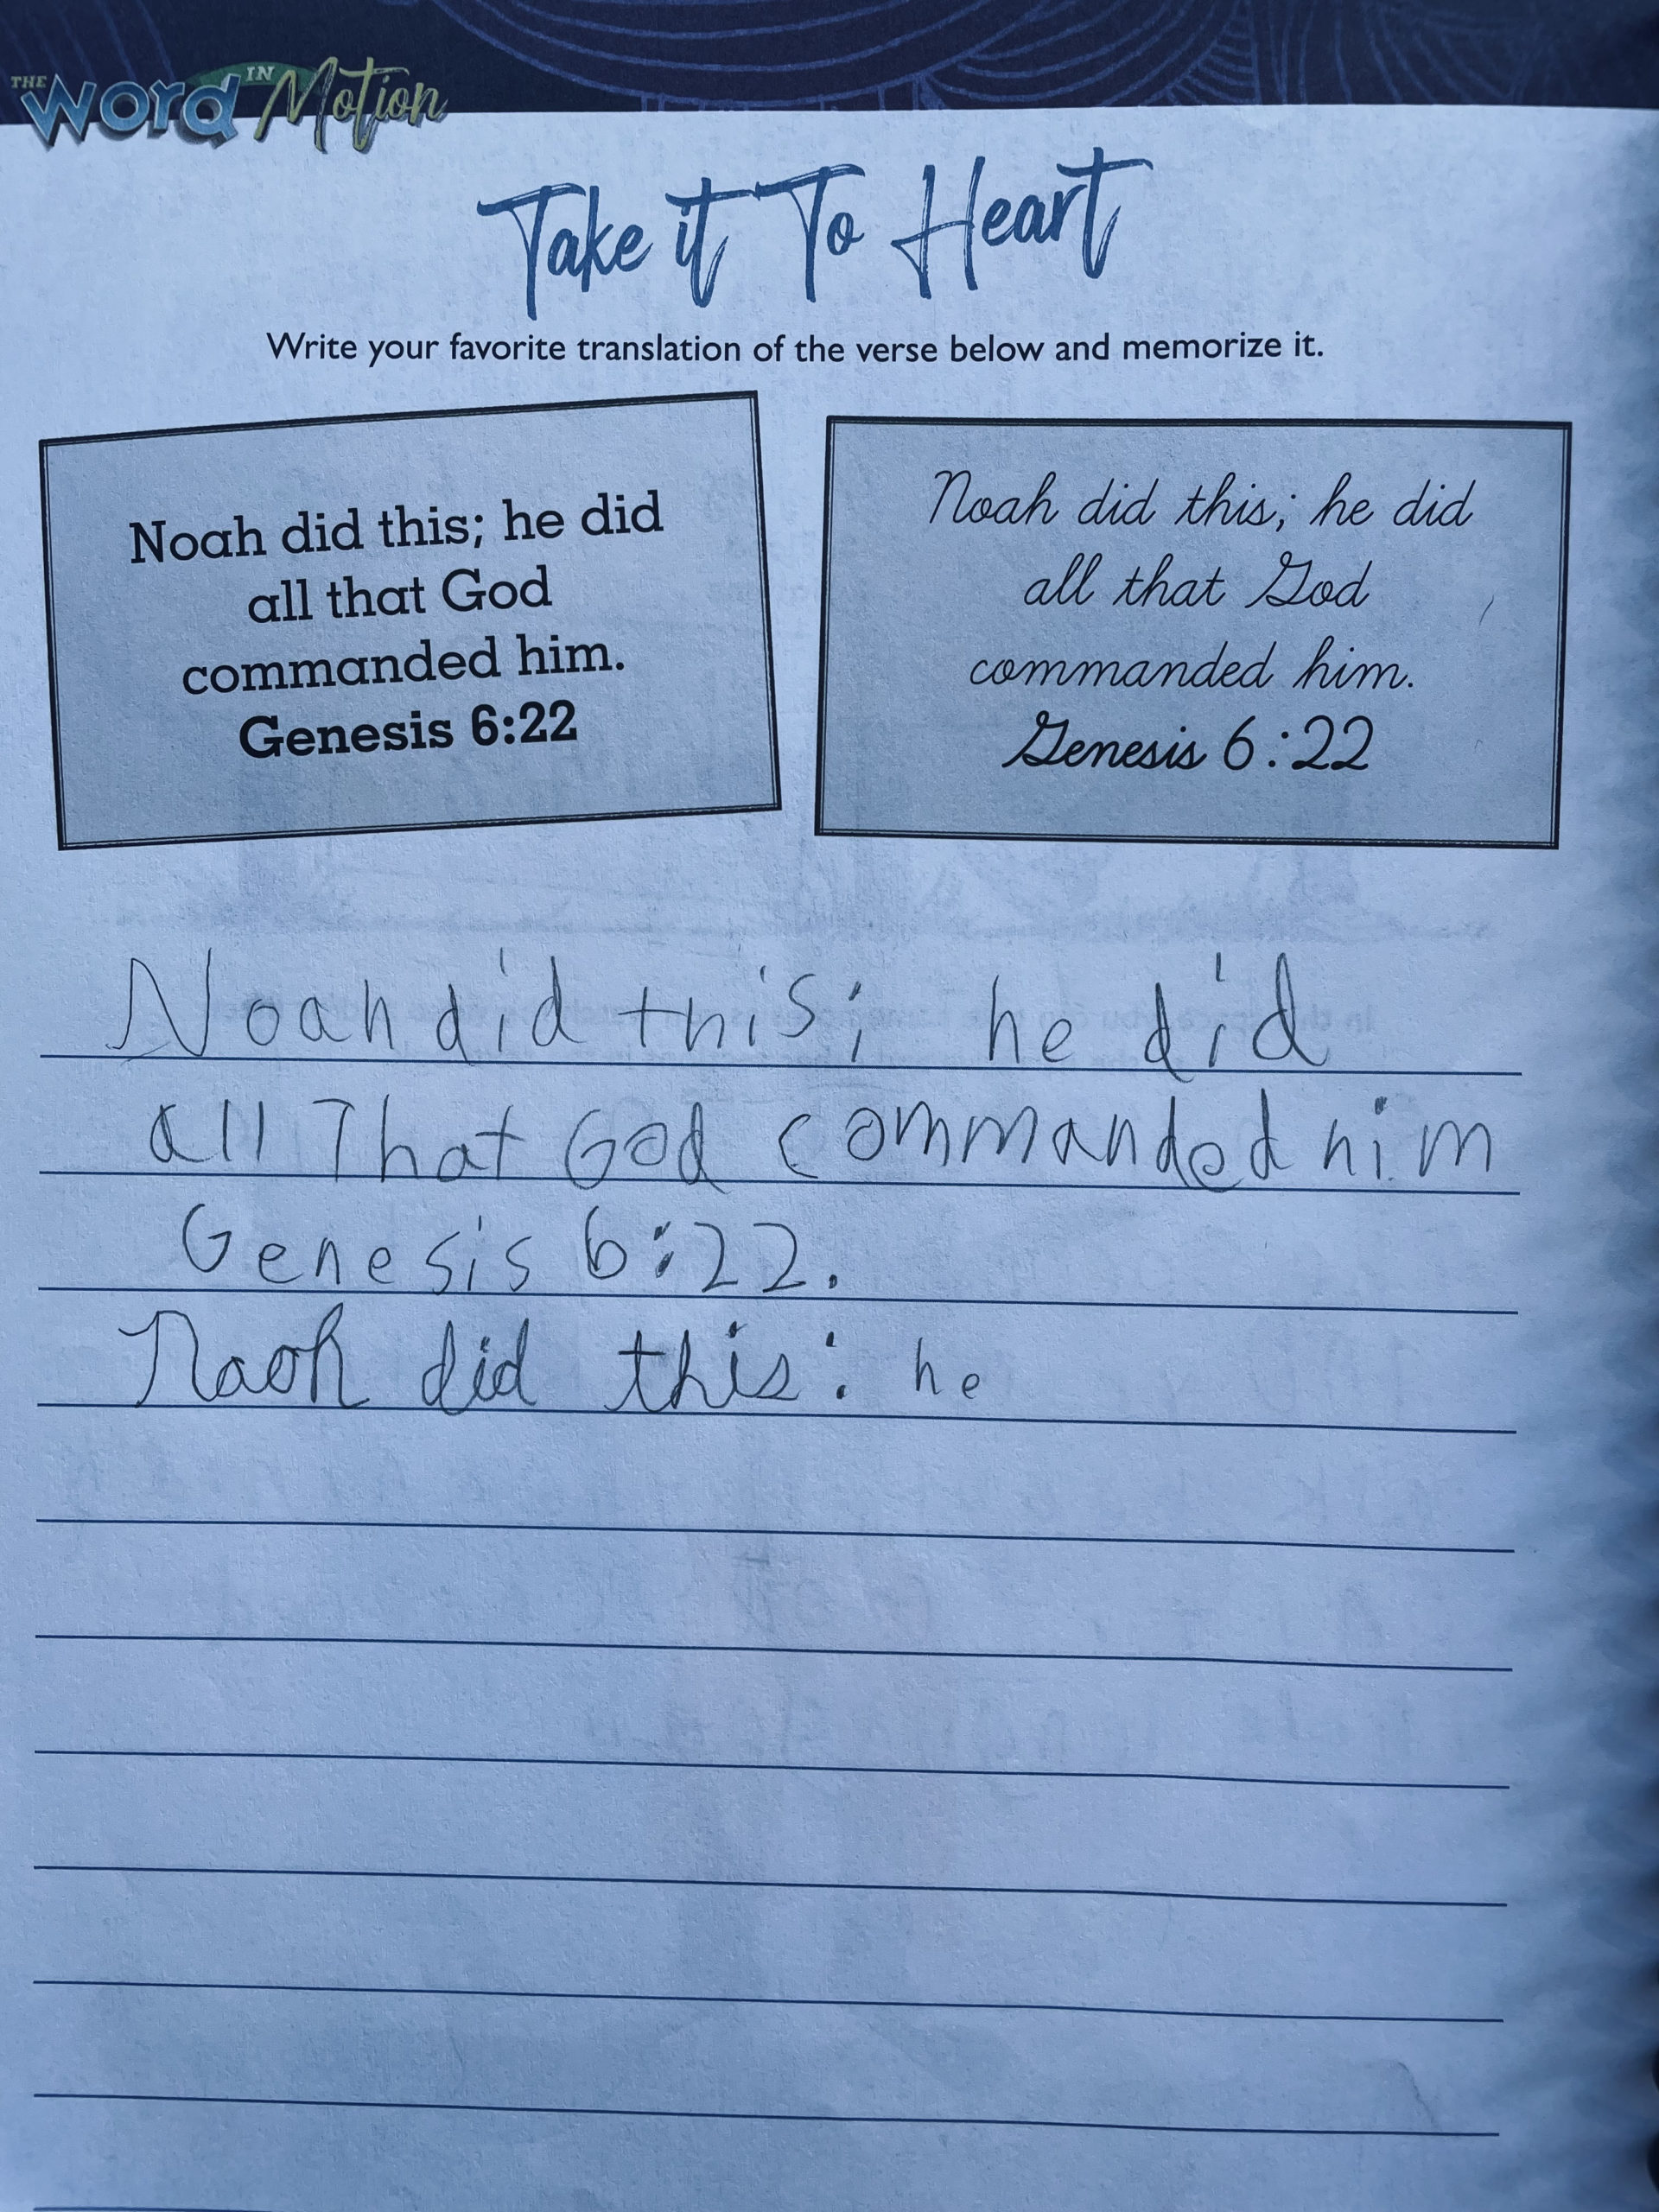 THE Word IN Motion
Take it To Heart
Write your favorite translation of the verse below and memorize it.
Noah did this; he did
all that God
commanded him.
Genesis 6:22
Noah did this; he did
all that God
commanded him.
Genesis 6:22
Noah did this; he did
all That God commanded him
Genesis 6:22.
Naoh did this: he